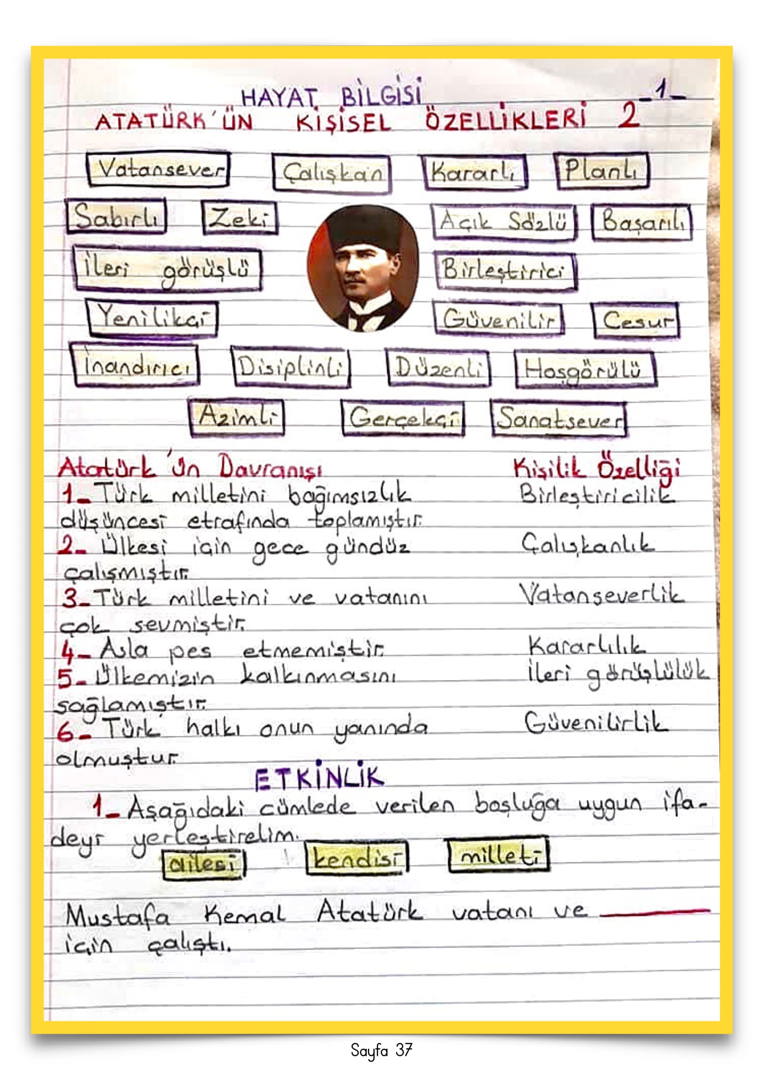 HAYAT BİLGİSİ -1-
ATATÜRK'ÜN KİŞİSEL ÖZELLİKLERİ 2
Vatansever Çalışkan Kararlı Planlı
Sabırlı Zeki Açık Sözlü Başarılı
İleri görüşlü Birleştirici
Yenilikçi Güvenilir Cesur
İnandırıcı Disiplinli Düzenli Hoşgörülü
Azimli Gerçekçi Sanatsever
Atatürk'ün Davranışı Kişilik Özelliği
1- Türk milletini bağımsızlık Birleştiricilik
düşüncesi etrafında toplamıştır.
2- Ülkesi için gece gündüz Çalışkanlık
çalışmıştır.
3- Türk milletini ve vatanını Vatanseverlik
çok sevmiştir.
4- Asla pes etmemiştir. Kararlılık
5- Ülkemizin kalkınmasını İleri görüşlülük
sağlamıştır.
6- Türk halkı onun yanında Güvenilirlik
olmuştur.
ETKİNLİK
1- Aşağıdaki cümlede verilen boşluğa uygun ifa-
deyi yerleştirelim.
ailesi kendisi milleti
Mustafa Kemal Atatürk vatanı ve ______
için çalıştı.
Sayfa 37